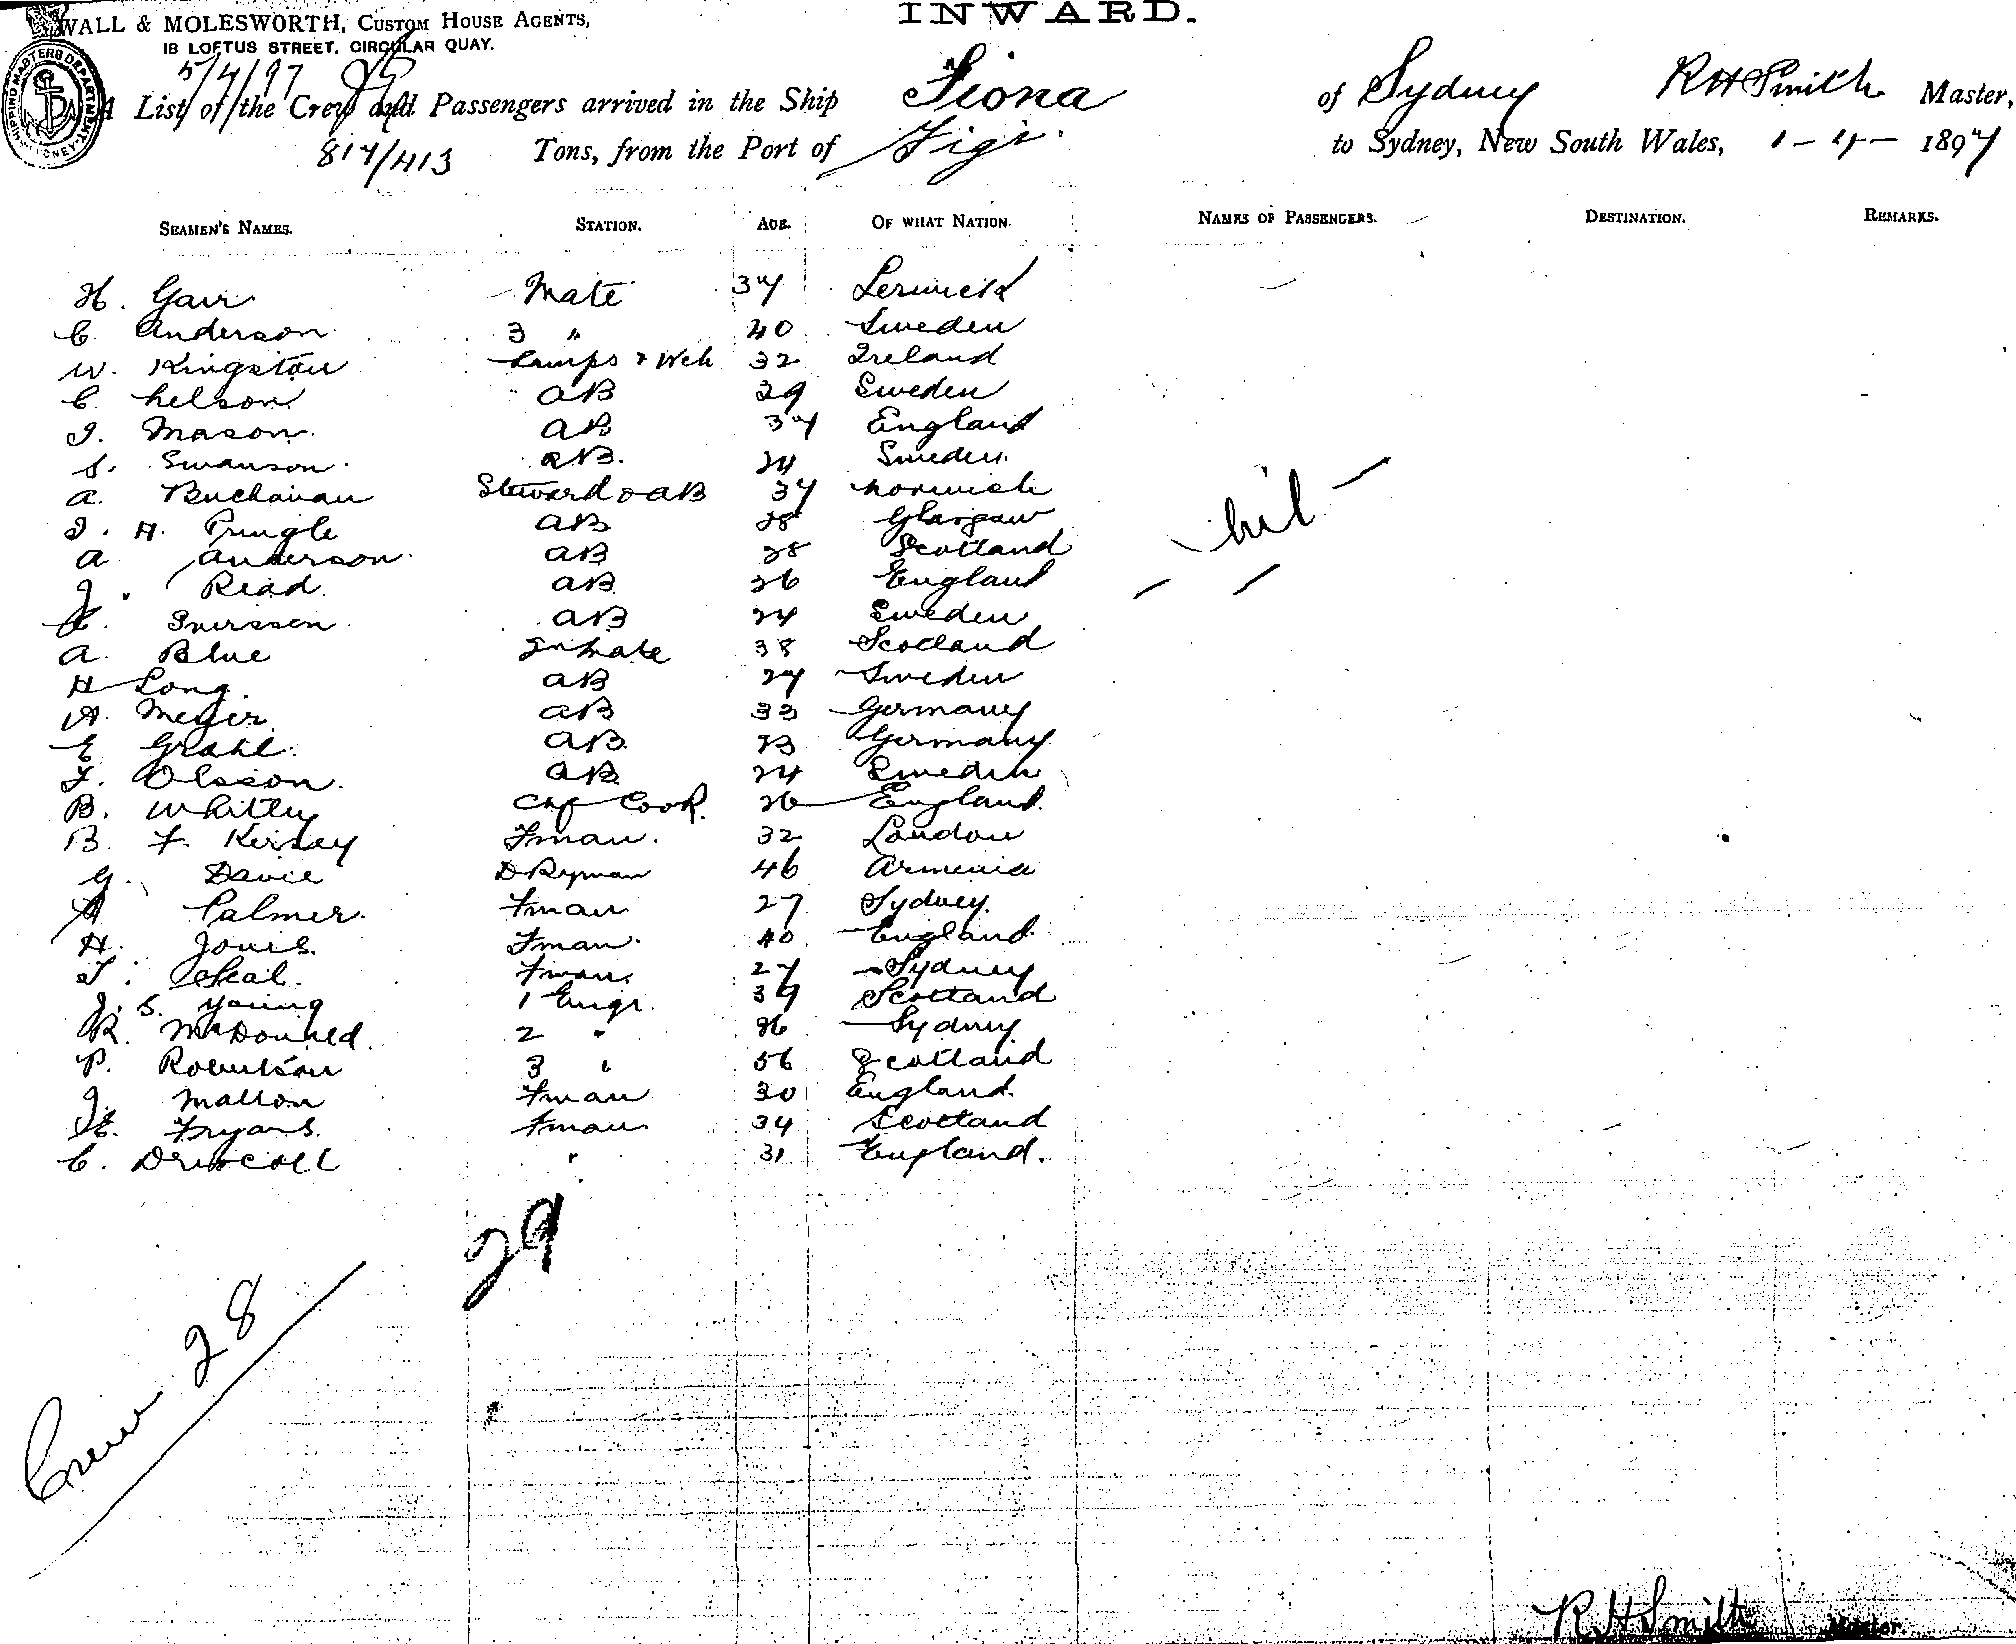 INWARD.
WALL & MOLESWORTH, CUSTOM HOUSE AGENTS,
18 LOFTUS STREET, CIRCULAR QUAY.
5/4/97
SHIPPING MASTERS DEPARTMENT SYDNEY
A List of the Crew and Passengers arrived in the Ship Fiona of Sydney R H Smith Master,
817/413 Tons, from the Port of Figi to Sydney, New South Wales, 1 - 4 - 1897
SEAMEN'S NAMES. STATION. AGE. OF WHAT NATION. NAMES OF PASSENGERS. DESTINATION. REMARKS.
H. Garr Mate 37 Lerwick
C. Anderson 3 " 40 Sweden
W. Kingston Lamps & Wch 32 Ireland
C. Nelson AB 29 Sweden
J. Mason AB 37 England
S. Swanson AB. 24 Sweden
A. Buchanan Steward & AB 37 Norwich
J. H. Pringle AB 28 Glasgow
A Anderson AB 28 Scotland
J. Read. AB 26 England
Iversen AB 24 Sweden
A. Blue 2n Mate 38 Scotland
H Long. AB 27 Sweden
A. Meyer AB 33 Germany
E Grahl. AB 23 Germany
F. Olsson. AB 24 Sweden
B. Whitty Chf Cook. 26 England.
B. F. Kersey Fman. 32 London
G. Davie DKyman 46 Armenia
A Palmer. Fman 27 Sydney.
H. Jones. Fman. 40 England
T. Seal. Fman. 27 Sydney
J. S. Young 1 Engr. 39 Scotland
R. McDonald. 2 " 26 Sydney
P. Robertson 3 " 56 Scotland
J. Mallon Fman 30 England.
Fryars. Fman 34 Scotland
C. Driscoll " 31 England.
- Nil -
29
Crew 28
R H Smith Master